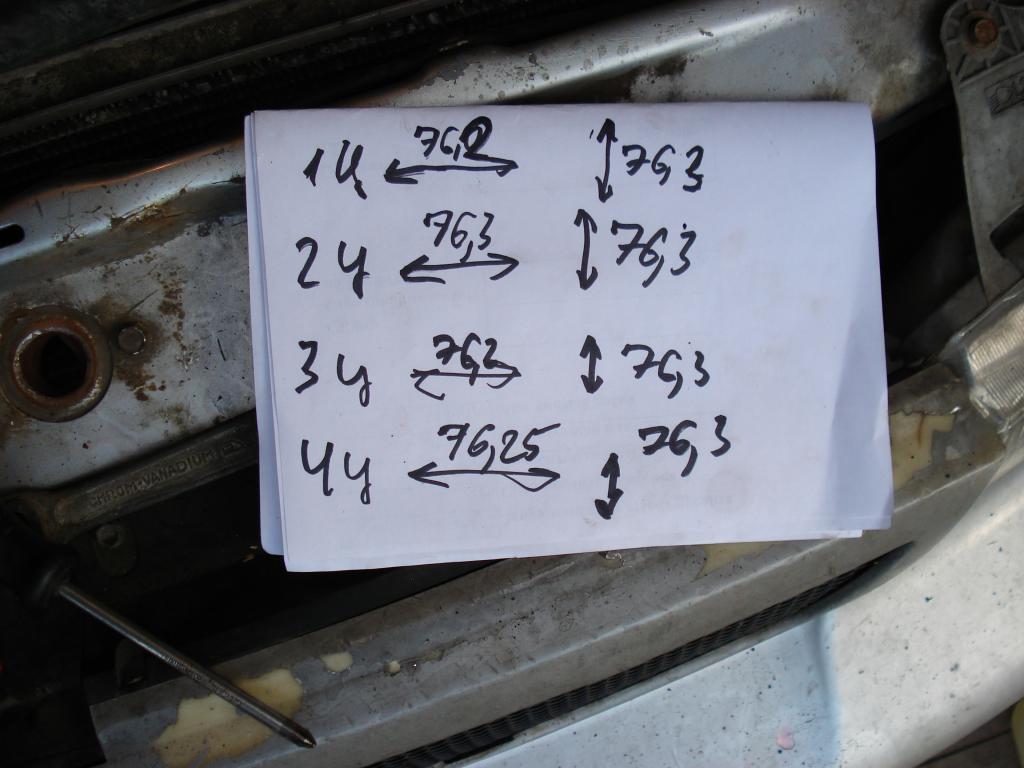 1Ц 76,2 76,3
2ц 76,3 76,3
3ц 76,2 76,3
4ц 76,25 76,3
CHROM-VANADIUM